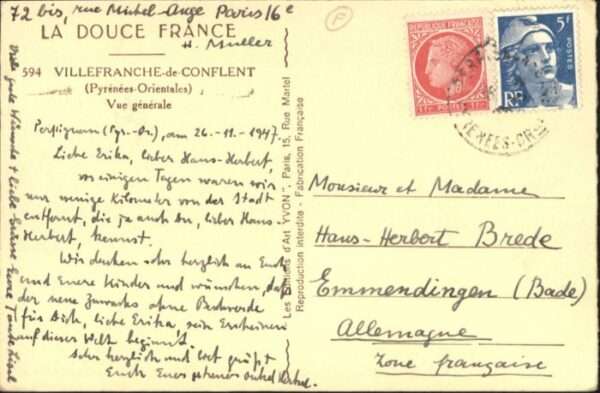 72 bis, rue Michel-Ange Paris 16e
H. Müller
LA DOUCE FRANCE
594 VILLEFRANCHE-de-CONFLENT
(Pyrénées-Orientales)
Vue générale
Perpignan (Pyr.-Or.), am 26.-11.-1947.
Liebe Erika, lieber Hans-Herbert,
vor einigen Tagen waren wir
nur wenige Kilometer von der Stadt
entfernt, die ja auch Du, lieber Hans-
Herbert, kennst.
Wir denken sehr herzlich an Euch
und Euere Kinder und wünschen, daß
der neue Zuwachs ohne Beschwerde
für Dich, liebe Erika, sein Erscheinen
auf dieser Welt beginnt.
Sehr herzlich und lieb grüßt
Euch Euer getreuer Onkel
Viele gute Wünsche + liebe Grüsse Eure Tante Liesel
Les Editions d'Art "YVON", Paris, 15, Rue Martel
Reproduction interdite - Fabrication Française
REPUBLIQUE FRANÇAISE
POSTES
5F
POSTES
RF
Monsieur et Madame
Hans-Herbert Brede
Emmendingen (Bade)
Allemagne
Zone française